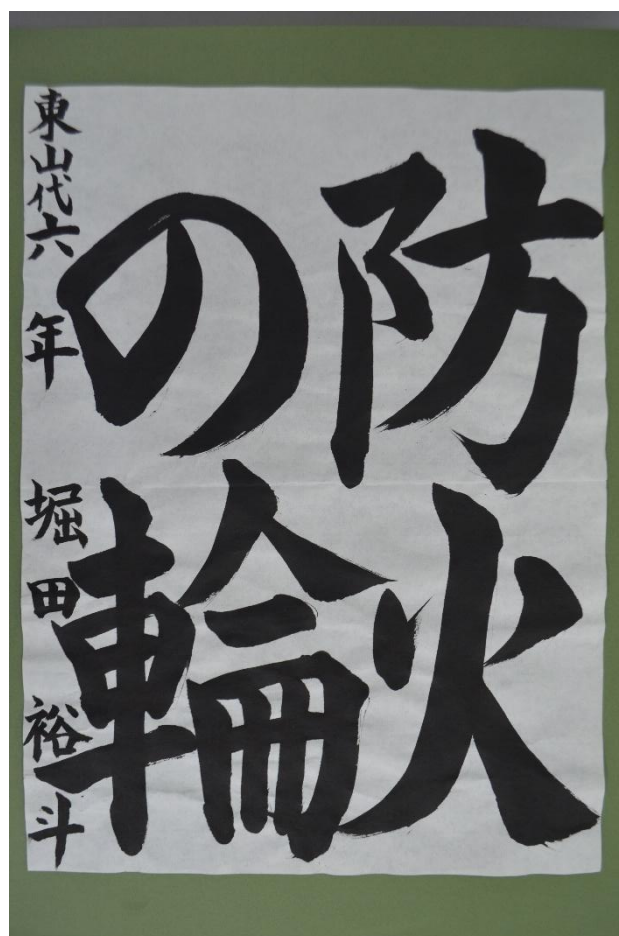 防火
の輪
東山代六年 堀田裕斗